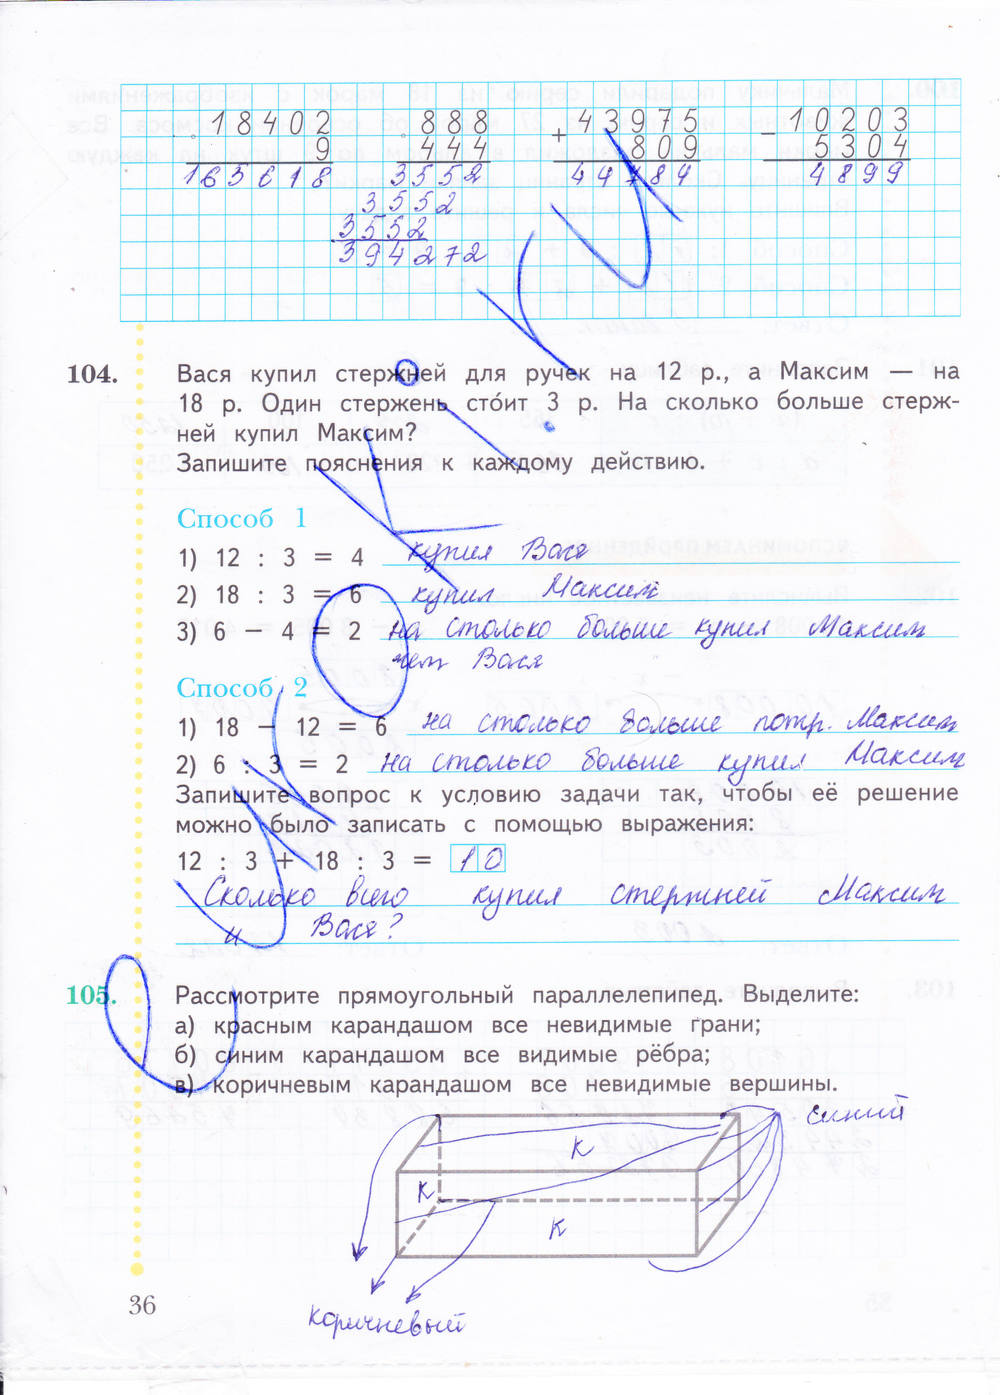 18402 888 + 43975 - 10203
9 444 809 5304
163618 3552 44784 4899
3552
3552
394272
104. Вася купил стержней для ручек на 12 р., а Максим — на
18 р. Один стержень стóит 3 р. На сколько больше стерж-
ней купил Максим?
Запишите пояснения к каждому действию.
Способ 1
1) 12 : 3 = 4 купил Вася
2) 18 : 3 = 6 купил Максим
3) 6 − 4 = 2 на столько больше купил Максим
чем Вася
Способ 2
1) 18 − 12 = 6 на столько больше потр. Максим
2) 6 : 3 = 2 на столько больше купил Максим
Запишите вопрос к условию задачи так, чтобы её решение
можно было записать с помощью выражения:
12 : 3 + 18 : 3 = 10
Сколько всего купил стержней Максим
и Вася?
105. Рассмотрите прямоугольный параллелепипед. Выделите:
а) красным карандашом все невидимые грани;
б) синим карандашом все видимые рёбра;
в) коричневым карандашом все невидимые вершины.
синий
К
К
К
36
коричневый